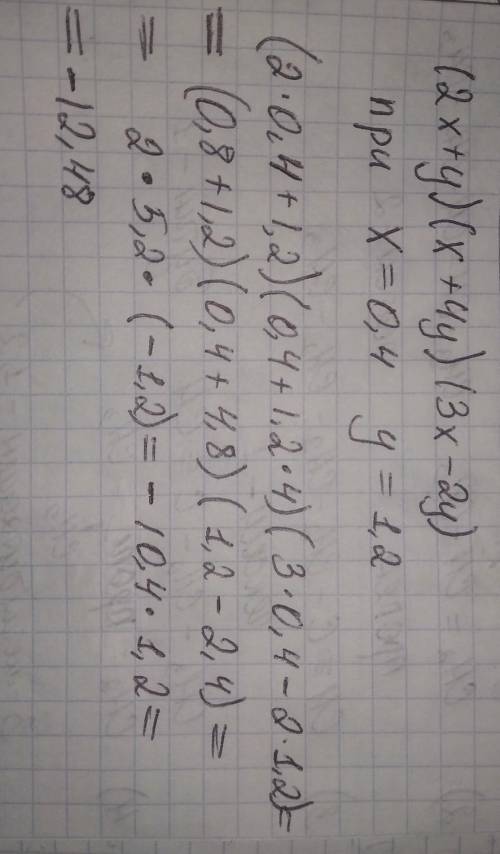 (2x+y)(x+4y)(3x-2y)
при x=0,4 y=1,2
(2·0,4+1,2)(0,4+1,2·4)(3·0,4-2·1,2)=
=(0,8+1,2)(0,4+4,8)(1,2-2,4)=
= 2·5,2·(-1,2)=-10,4·1,2=
=-12,48